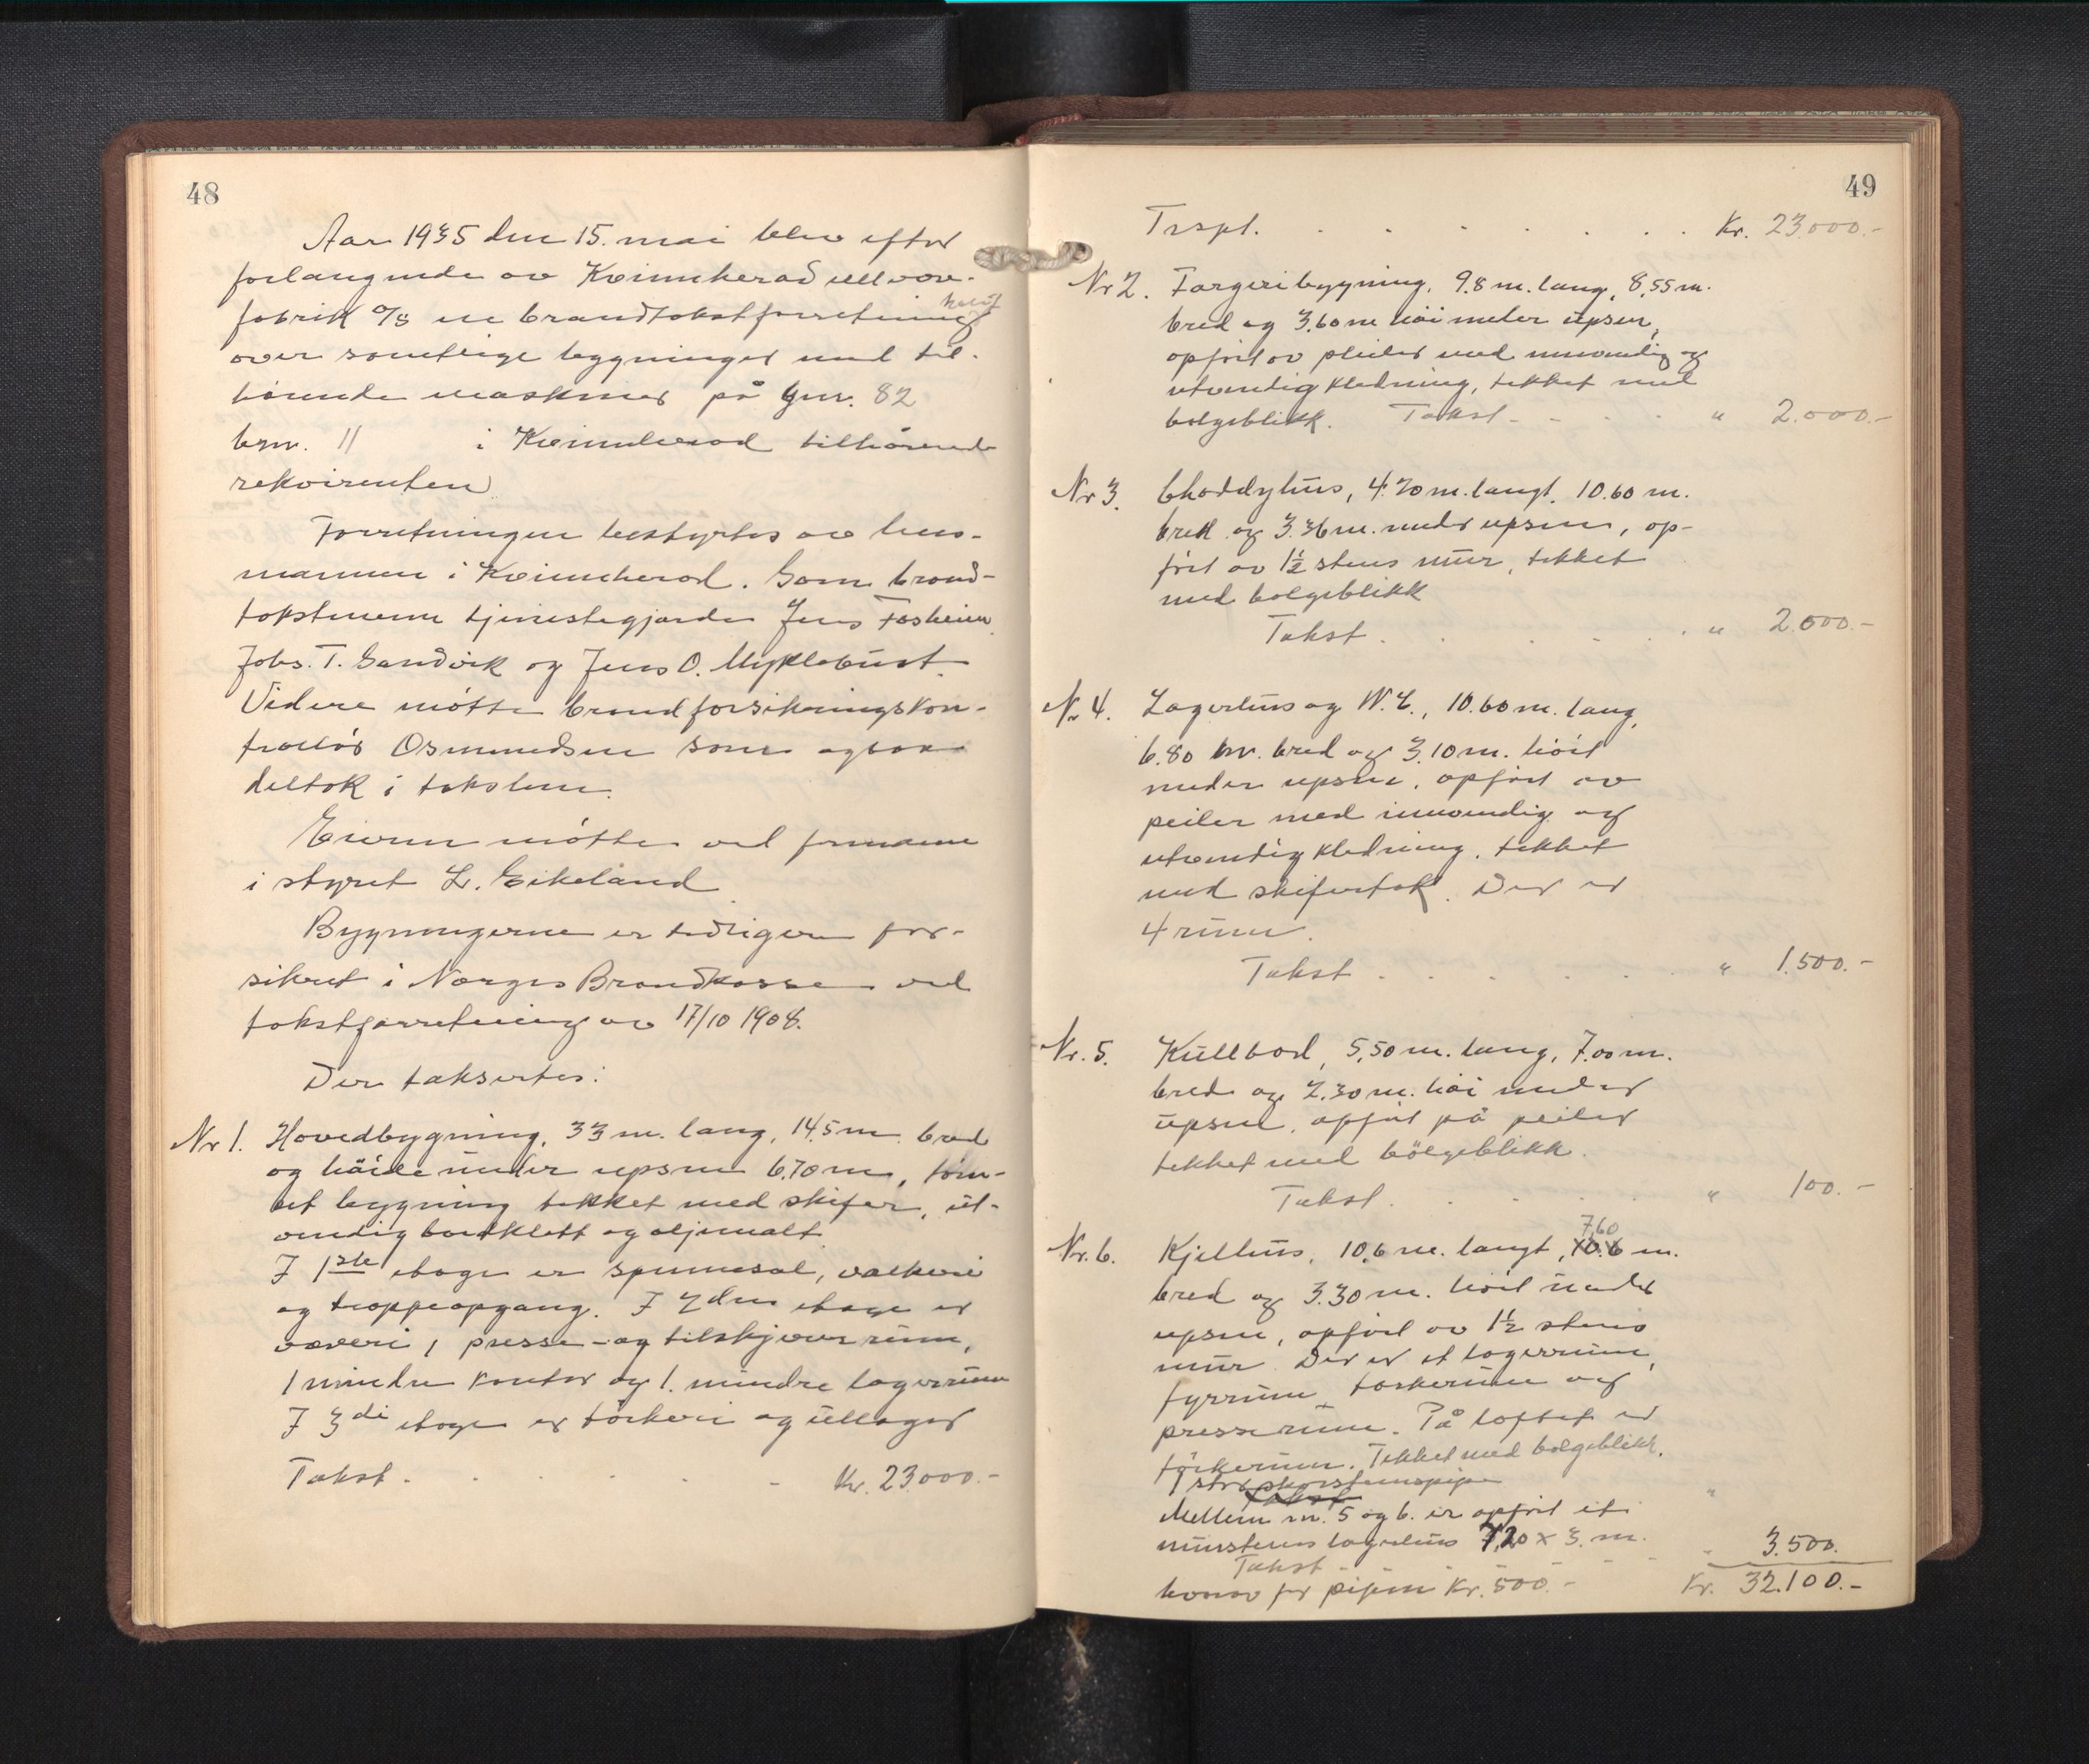 48
Aar 1935 den 15. mai blev efter
forlangende av Kvinnherad ullvare-
fabrik A/S en brandtakstforretning holdt
over samtlige bygninger med til-
hørende maskiner på gnr. 82
bnr. 11 i Kvinnherad tilhørende
rekvirenten
Forretningen bestyrtes av lens-
mannen i Kvinnherad. Som brand-
takstmenn tjenestegjorde Jens Fosheim
Johs. T. Sandvik og Jens O. Myklebust.
Videre møtte brandforsikringskon-
trollør Osmundsen som ogsaa
deltok i taksten.
Eieren møtte ved formann
i styret L. Eikeland
Bygningerne er tidligere for-
sikret i Norges Brandkasse ved
takstforretning av 17/10 1908.
Der taksertes:
Nr 1. Hovedbygning, 33 m. lang, 14,5 m. bred
og høide under upsen 6.70 m, tøm-
ret bygning tekket med skifer, ut-
vendig bordklett og oljemalt
I 1ste etage er spinnesal, valkeri
og troppeopgang. I 2den etage er
væveri, presse- og tilskjærer rum,
1 mindre kontor og 1. mindre lagerrum
I 3di etage er tørkeri og ullager
Takst . . . . . - Kr. 23.000.-
49
Trspt. . . . . . . . Kr. 23.000.-
Nr 2. Fargeribygning, 9.8 m. lang, 8,55 m.
bred og 3.60 m høi under upsen,
opført av peiler med innvendig og
utvendig kledning, tekket med
bølgeblikk. Takst - - . . " 2.000.-
Nr 3. Shoddyhus, 4.70 m. langt, 10.60 m.
bred og 3.36 m. under upsen, op-
ført av 1½ stens mur, tekket
med bølgeblikk
Takst . . . . . " 2.000.-
Nr 4. Lagerhus og W.C., 10.60 m. lang,
6.80 m. bred og 3,10 m. høit
under upsen, opført av
peiler med innvendig og
utvendig kledning, tekket
med skifertak. Der er
4 rum.
Takst . . . . . " 1.500.-
Nr. 5. Kullbod, 5,50 m. lang, 7.00 m.
bred og 2.30 m. høi under
upsen, opført på peiler
tekket med bölgeblikk.
Takst . . . . " 100.-
Nr. 6. Kjelhus, 10,6 m. langt, 10.6 7,60 m.
bred og 3.30 m. høit under
upsen, opført av 1½ stens
mur. Der er et lagerrum,
fyrrum, tørkerum og
presserum. På loftet er
törkerum. Tekket med bølgeblikk.
1 stor skorstenspipe
Takst
Mellem nr. 5 og 6. er opført et
murstens lagerhus 7,20 x 3. m.
Takst - - - - - " 3.500.
hvorav for pipen Kr. 500.- Kr. 32.100.-